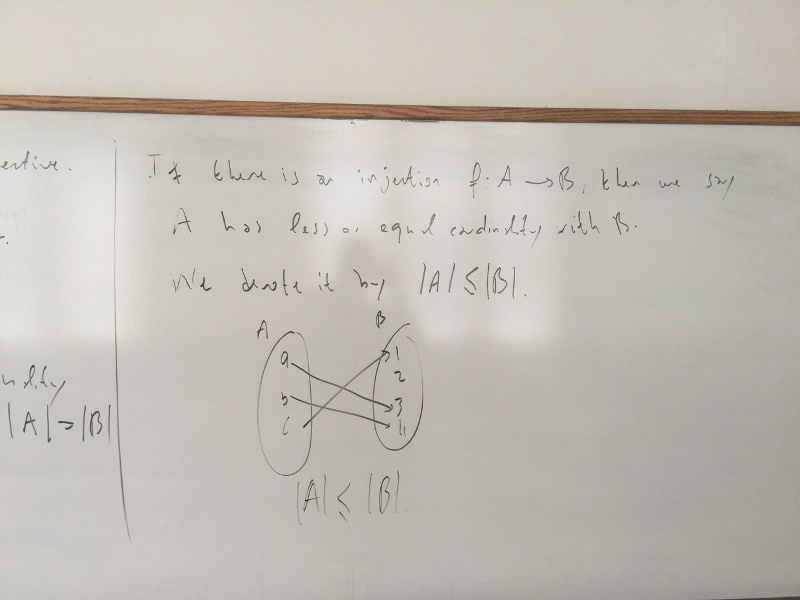 ective.
r.
nality
|A|=|B|
If there is an injection f: A → B, then we say
A has less or equal cardinality with B.
We denote it by |A| ≤ |B|.
A B
a 1
2
b 3
c 4
|A| ≤ |B|.